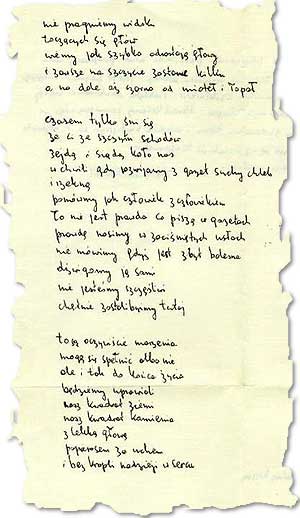 nie pragniemy widoku
toczących się głów
wiemy jak szybko odrastają głowy
i zawsze na szczycie zostanie kilku
a na dole aż czarno od mioteł i łopat
czasem tylko śni się
że ci ze szczytu schodów
zejdą i siądą koło nas
w chwili gdy rozwijamy z gazet suchy chleb
i rzekną
pomówmy jak człowiek z człowiekiem
To nie jest prawda co piszą w gazetach
prawdę nosimy w zaciśniętych ustach
nie mówimy gdyż jest zbyt bolesna
dźwigamy ją sami
nie jesteśmy szczęśliwi
chętnie zostalibyśmy tutaj
to są oczywiście marzenia
mogą się spełnić albo nie
ale i tak do końca życia
będziemy uprawiali
nasz kwadrat ziemi
nasz kwadrat kamienia
z lekką głową
papierosem za uchem
i bez kropli nadziei w sercu